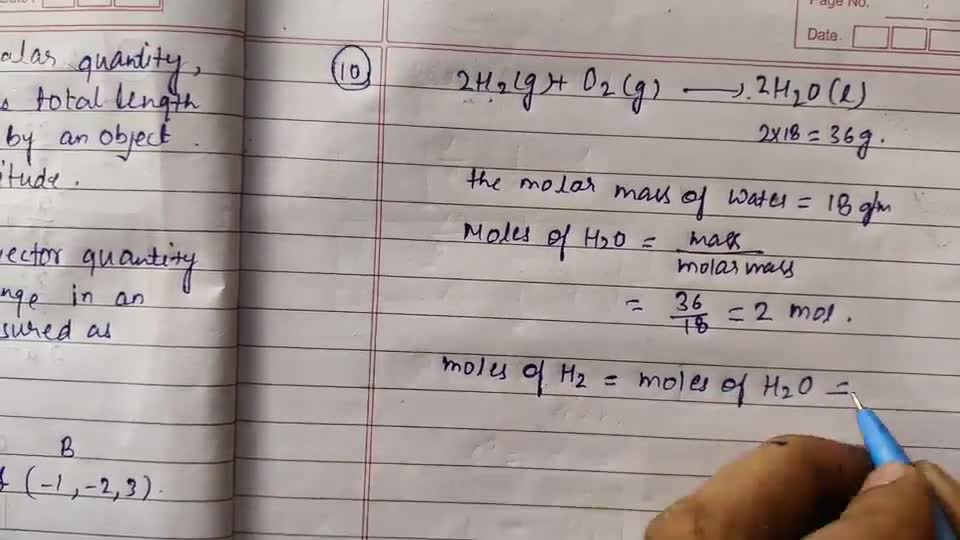 Page No.
Date
alar quantity,
total length
by an object.
itude.
ector quantity
nge in an
sured as
B
(-1, -2, 3).
10
2H2(g) + O2(g) ⟶ 2H2O(l)
2×18 = 36g.
the molar mass of water = 18 g/m
Moles of H2O = mass
molar mass
= 36/18 = 2 mol.
moles of H2 = moles of H2O =